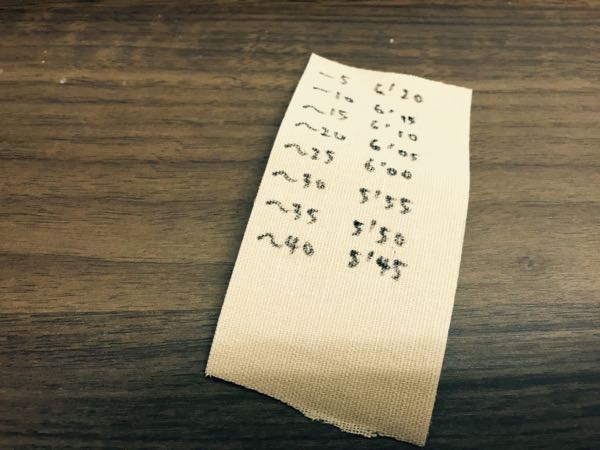 ~5 6'20
~10 6'15
~15 6'10
~20 6'05
~25 6'00
~30 5'55
~35 5'50
~40 5'45